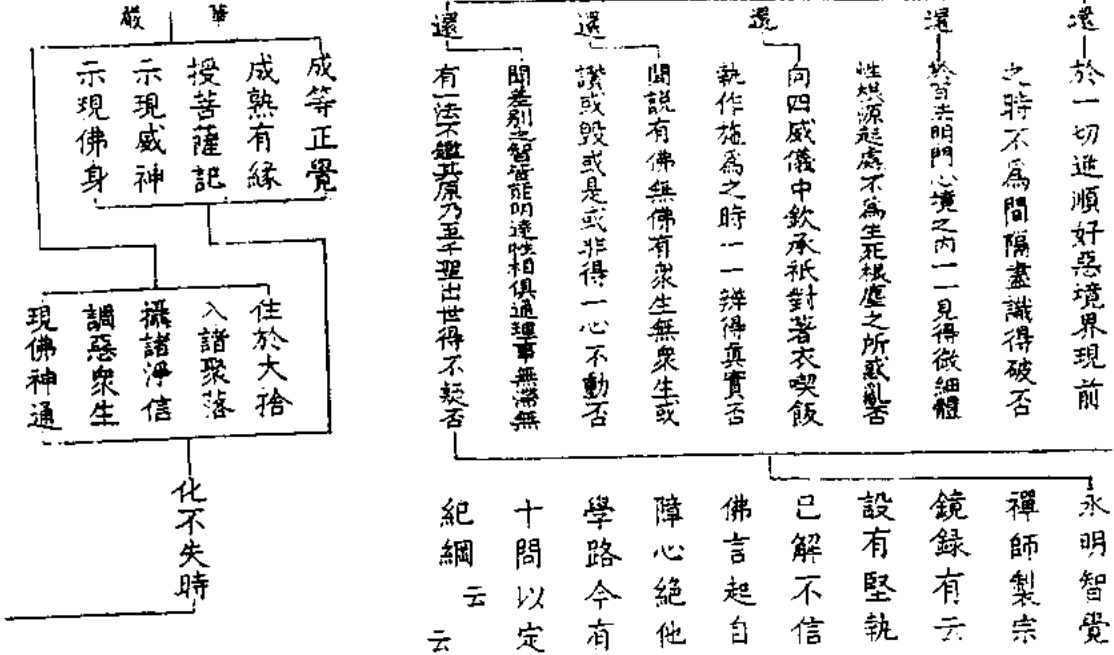 還
於一切進順好惡境界現前
之時不爲間隔盡識得破否
還
於百法明門心境之内一一見得微細體
性根源起處不爲生死根塵之所惑亂否
還
向四威儀中欽承祇對著衣喫飯
執作施爲之時一一辨得真實否
還
聞説有佛無佛有衆生無衆生或
讚或毀或是或非得一心不動否
還
聞差別之智皆能明達性相俱通理事無滯無
有一法不鑑其原乃至千聖出世得不疑否
永明智覺
禪師製宗
鏡録有云
設有堅執
己解不信
佛言起自
障心絶他
學路今有
十問以定
紀綱云
云
華嚴
成等正覺
成熟有緣
授菩薩記
示現威神
示現佛身
住於大捨
入諸聚落
攝諸淨信
調惡衆生
現佛神通
化不失時